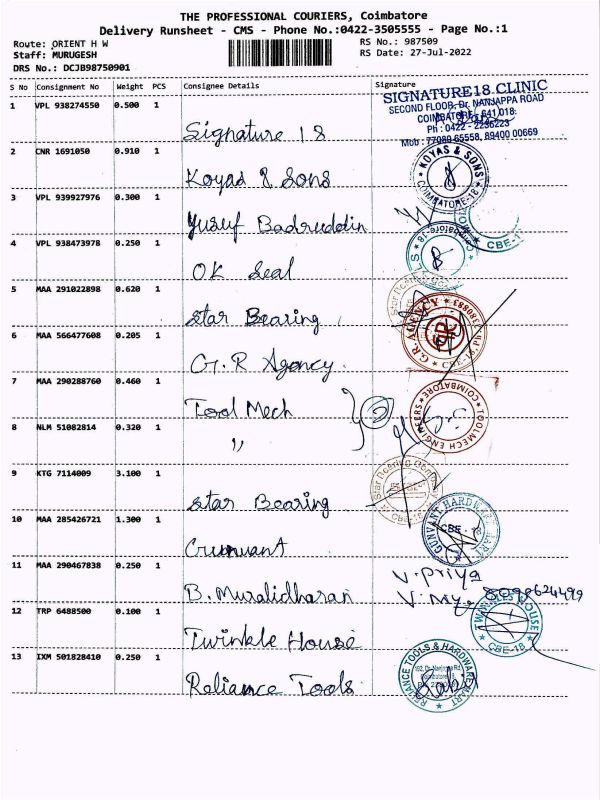 THE PROFESSIONAL COURIERS, Coimbatore
Delivery Runsheet - CMS - Phone No.:0422-3505555 - Page No.:1
Route: ORIENT H W RS No.: 987509
Staff: MURUGESH RS Date: 27-Jul-2022
DRS No.: DCJB98750901
S No Consignment No Weight PCS Consignee Details Signature
1 VPL 938274550 0.500 1 Signature 18
SIGNATURE18 CLINIC
SECOND FLOOR, Dr. NANJAPPA ROAD
COIMBATORE - 641 018.
Ph : 0422 - 2236223
Mob : 77080 65558, 89400 00669
2 CNR 1691050 0.910 1 Koyas & Sons
KOYAS & SONS
COIMBATORE-18
3 VPL 939927976 0.300 1 Yusuf Badruddin
CBE-1
4 VPL 938473978 0.250 1 OK Seal
5 MAA 291022898 0.620 1 Star Bearing
6 MAA 566477608 0.205 1 G.R Agency
G.R. AGENCY
7 MAA 290288760 0.460 1 Tool Mech
TOOLMECH ENGINEERS
COIMBATORE
8 NLM 51082814 0.320 1 "
9 KTG 7114009 3.100 1 Star Bearing
Star Bearing Company
CBE-18
10 MAA 285426721 1.300 1 Gunvant
GUNVANT HARDWARE MART
CBE - 18
11 MAA 290467838 0.250 1 B. Muralidharan
V. Priya
12 TRP 6488500 0.100 1 Twinkle House
TWINKLES HOUSE
CBE-18
13 IXM 501828410 0.250 1 Reliance Tools
RELIANCE TOOLS & HARDWARE MART